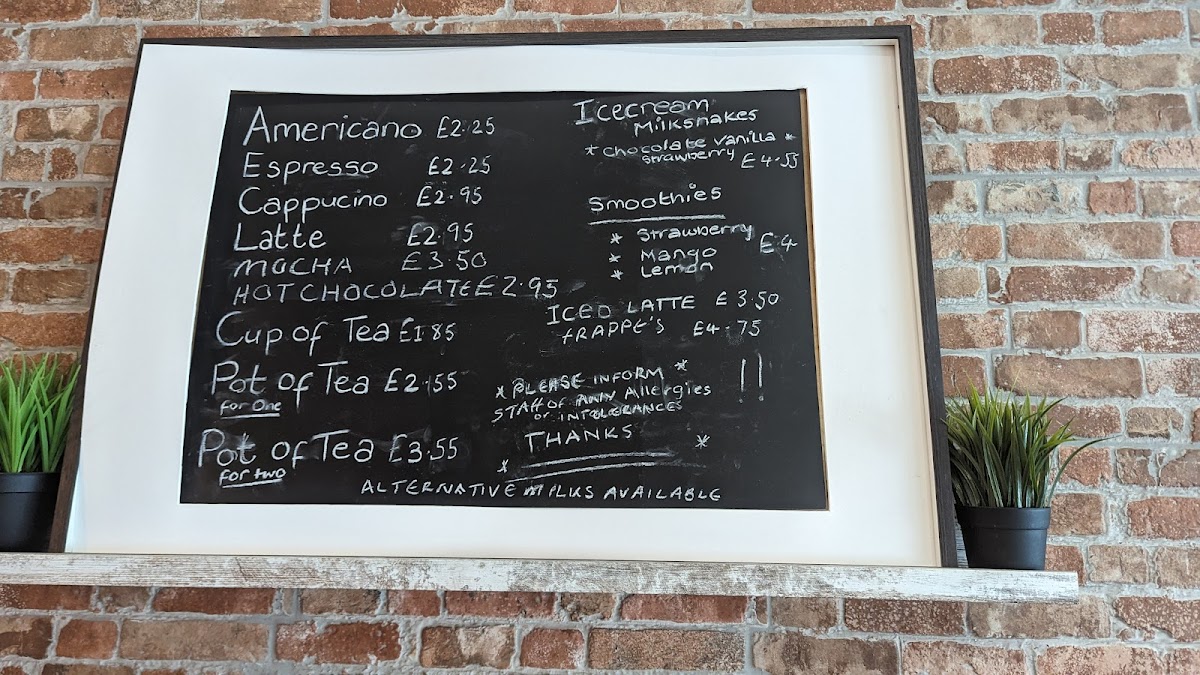 Americano £2.25
Espresso £2.25
Cappucino £2.95
Latte £2.95
MOCHA £3.50
HOT CHOCOLATE £2.95
Cup of Tea £1.85
Pot of Tea £2.55
for One
Pot of Tea £3.55
for two
Icecream
Milkshakes
* chocolate vanilla *
strawberry £4.55
Smoothies
* Strawberry
* Mango £4
* Lemon
ICED LATTE £3.50
fRAPPE'S £4.75
* PLEASE INFORM * !!
STAFF OF ANY Allergies
or INTOLERANCES
THANKS *
*
ALTERNATIVE MILKS AVAILABLE